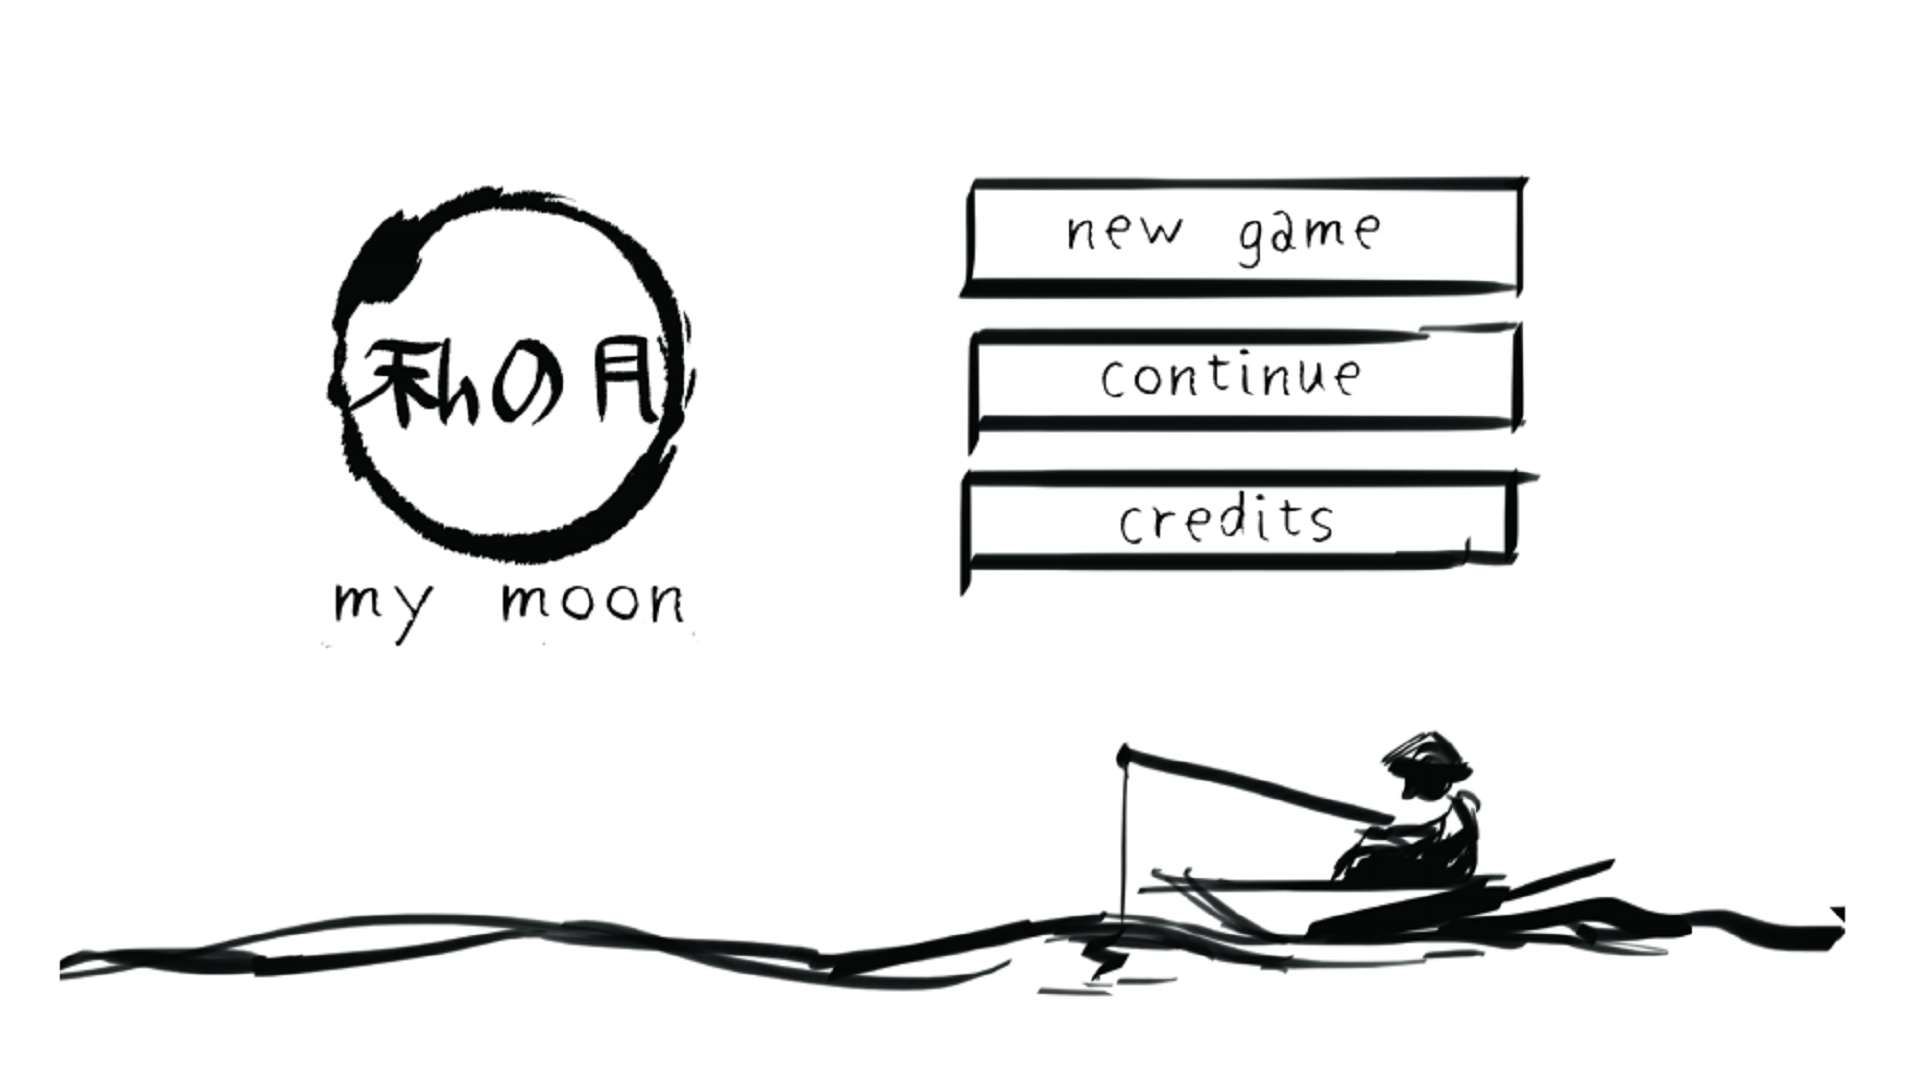 私の月
my moon
new game
continue
credits